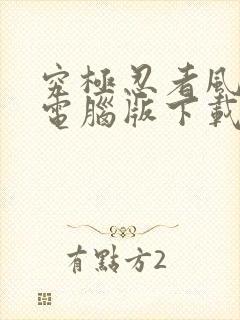 究極忍者風
電腦版下載
有點方2